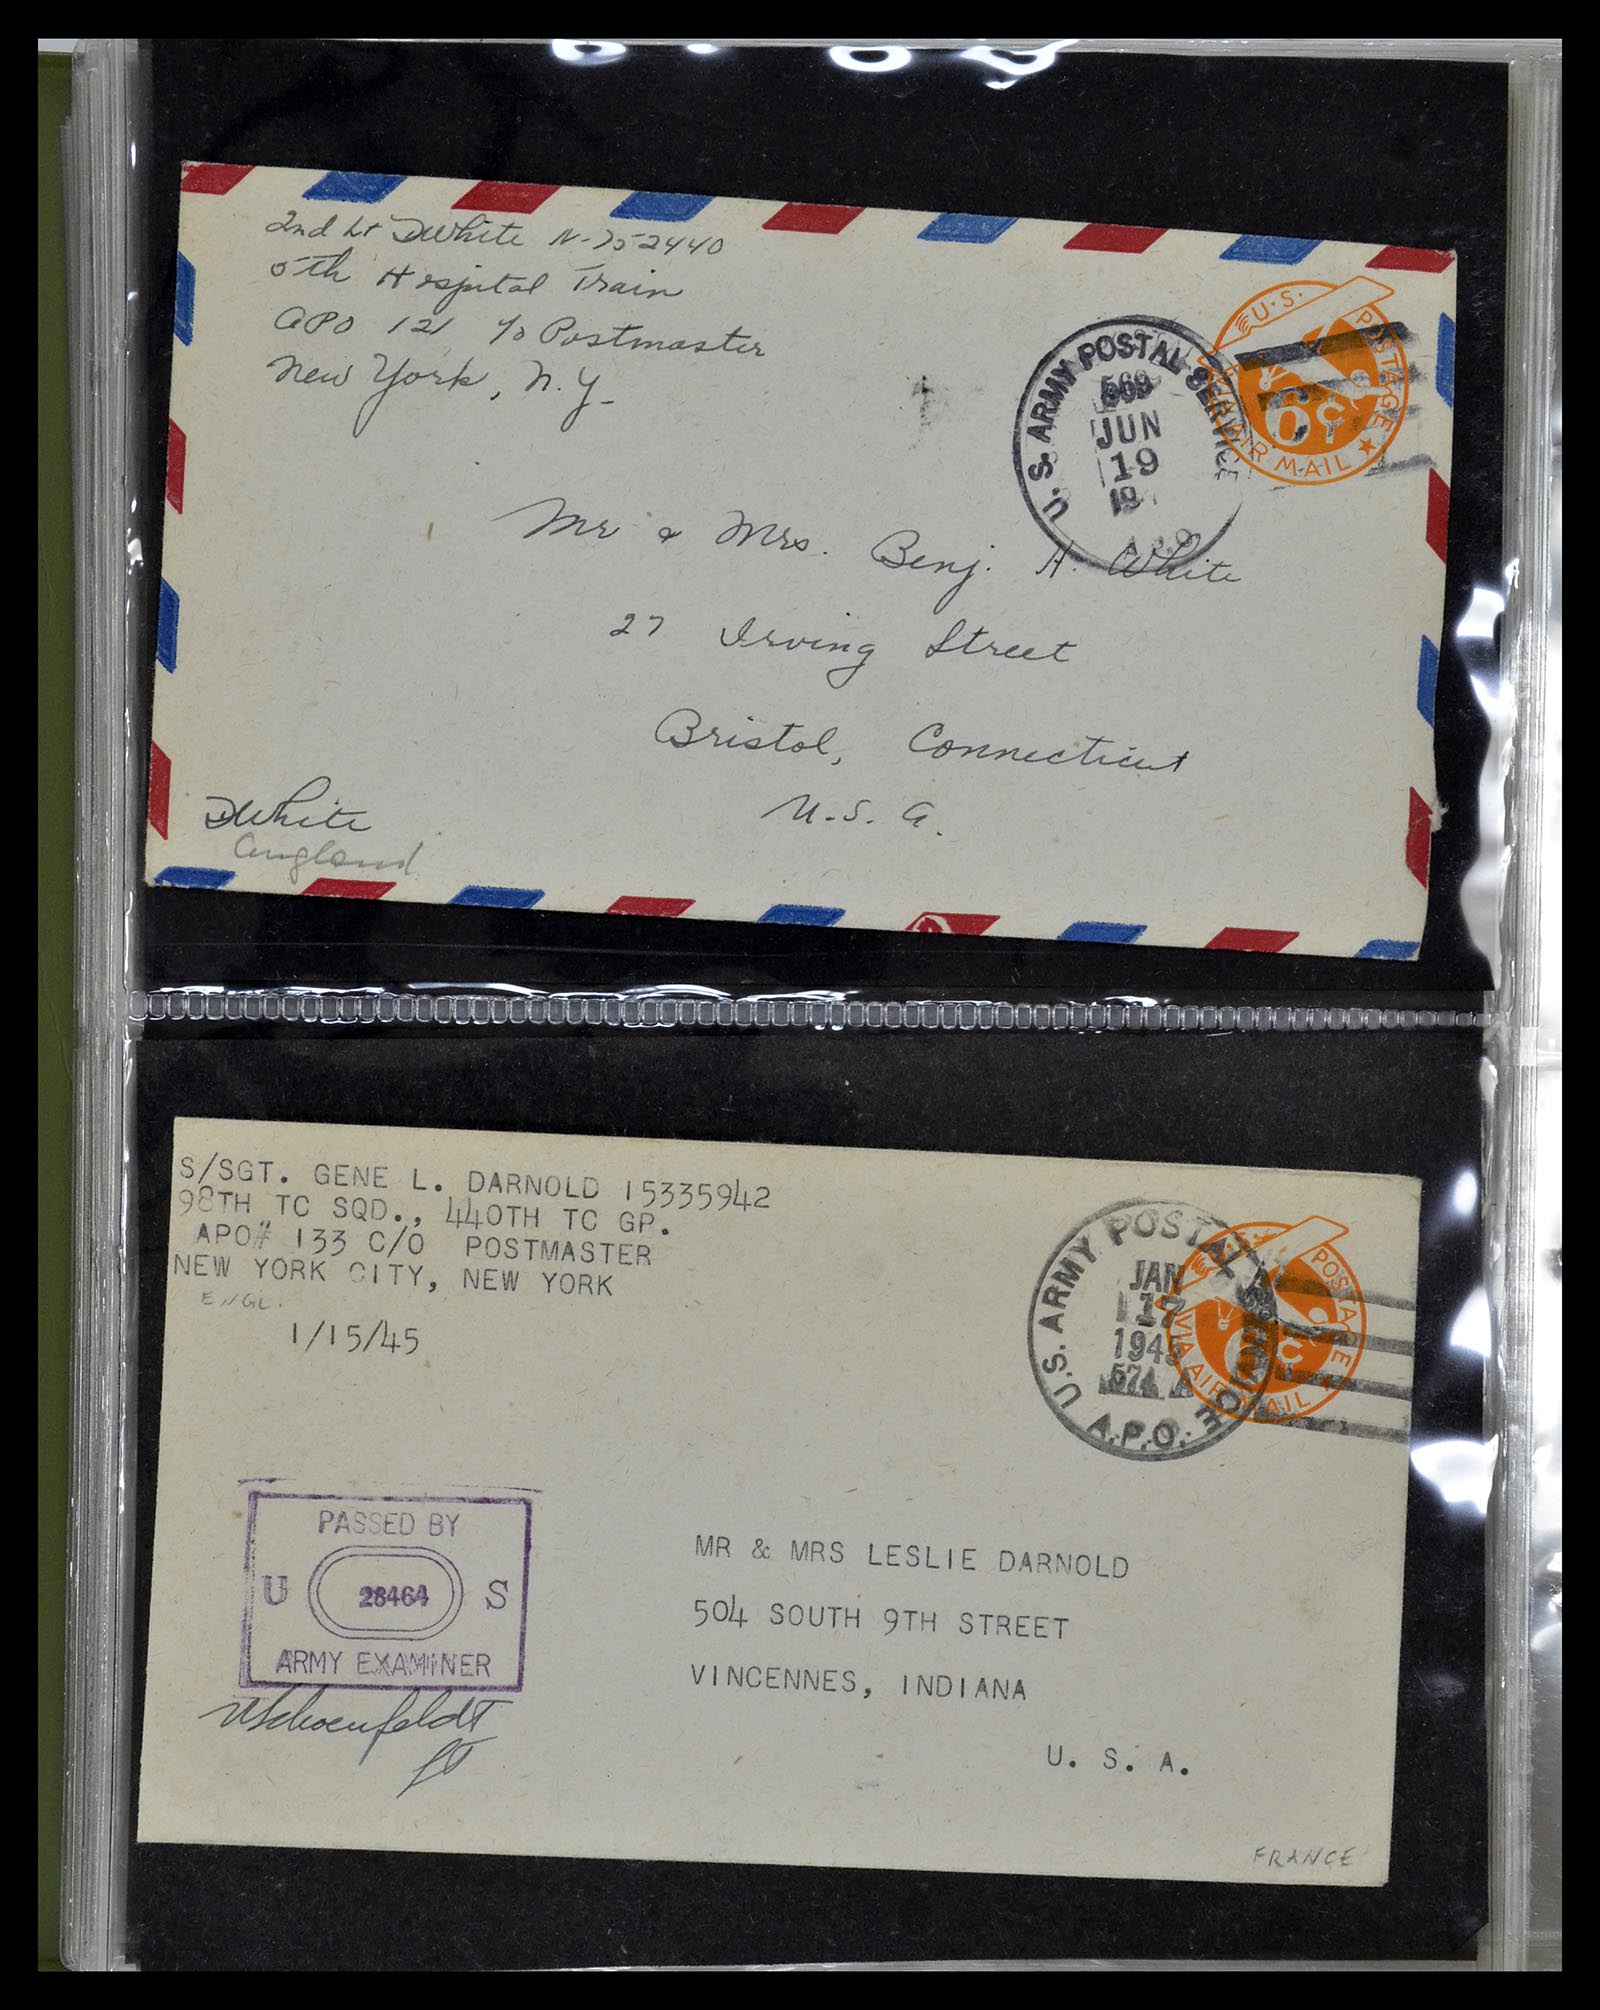 2nd Lt DWhite N-752440
5th Hospital Train
APO 121 c/o Postmaster
New York, N.Y.
U.S. ARMY POSTAL SERVICE
569
JUN
19
19
A.P.O.
U.S. POSTAGE
6¢
VIA AIR MAIL
Mr & Mrs. Benj. H. White
27 Irving Street
Bristol, Connecticut
U.S.A.
DWhite
England
S/SGT. GENE L. DARNOLD 15335942
98TH TC SQD., 440TH TC GP.
APO# 133 C/O POSTMASTER
NEW YORK CITY, NEW YORK
ENGL.
1/15/45
U.S. ARMY POSTAL SERVICE
JAN
17
1945
574
A.P.O.
U.S. POSTAGE
6¢
VIA AIR MAIL
PASSED BY
U 28464 S
ARMY EXAMINER
Schoenfeldt
MR & MRS LESLIE DARNOLD
504 SOUTH 9TH STREET
VINCENNES, INDIANA
U. S. A.
FRANCE